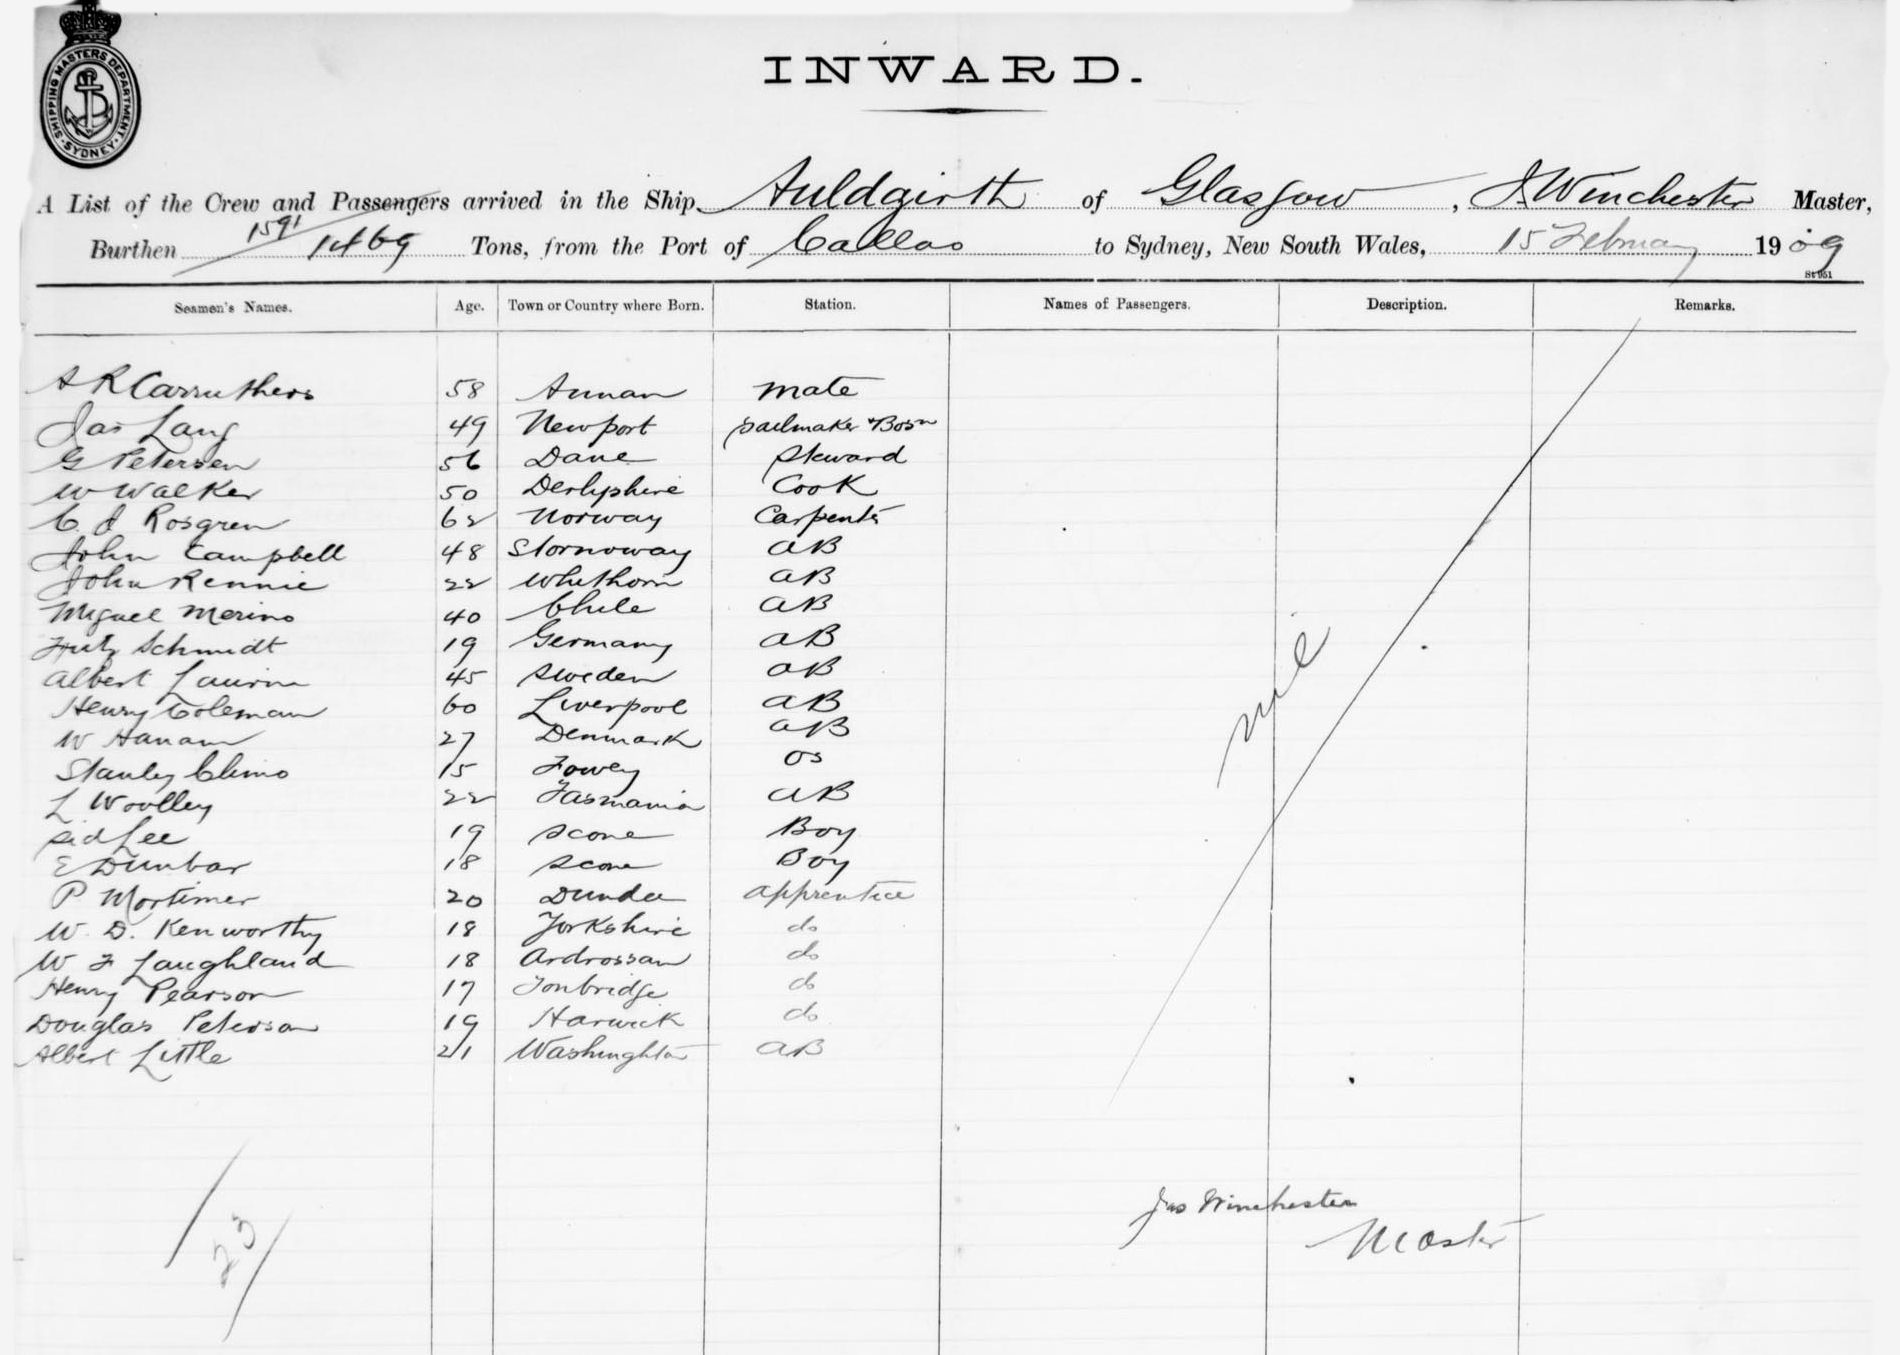 SHIPPING MASTERS DEPARTMENT · SYDNEY ·
INWARD.
A List of the Crew and Passengers arrived in the Ship Auldgirth of Glasgow, J Winchester Master,
Burthen 1591 1469 Tons, from the Port of Callao to Sydney, New South Wales, 15 February 1909
St 951
Seamen's Names. Age. Town or Country where Born. Station. Names of Passengers. Description. Remarks.
A R Carruthers 58 Annan Mate
Jas Lang 49 Newport Sailmaker & Bosn
G Petersen 56 Dane Steward
W Walker 50 Derbyshire Cook
C. J Rosgren 62 Norway Carpenter
John Campbell 48 Stornoway AB
John Rennie 22 Whithorn AB
Miguel Merino 40 Chile AB
Fritz Schmidt 19 Germany AB
Albert Laurin 45 Sweden AB
Henry Coleman 60 Liverpool AB
W Hanam 27 Denmark AB
Stanley Climo 15 Fowey OS
L Woolley 22 Tasmania AB
Sid Lee 19 Scone Boy
E Dunbar 18 Scone Boy
P Mortimer 20 Dundee apprentice
W. D. Kenworthy 18 Yorkshire do
W F Laughland 18 Ardrossan do
Henry Pearson 17 Tonbridge do
Douglas Peterson 19 Harwick do
Albert Little 21 Washington AB
nil
23
Jas Winchester
Master